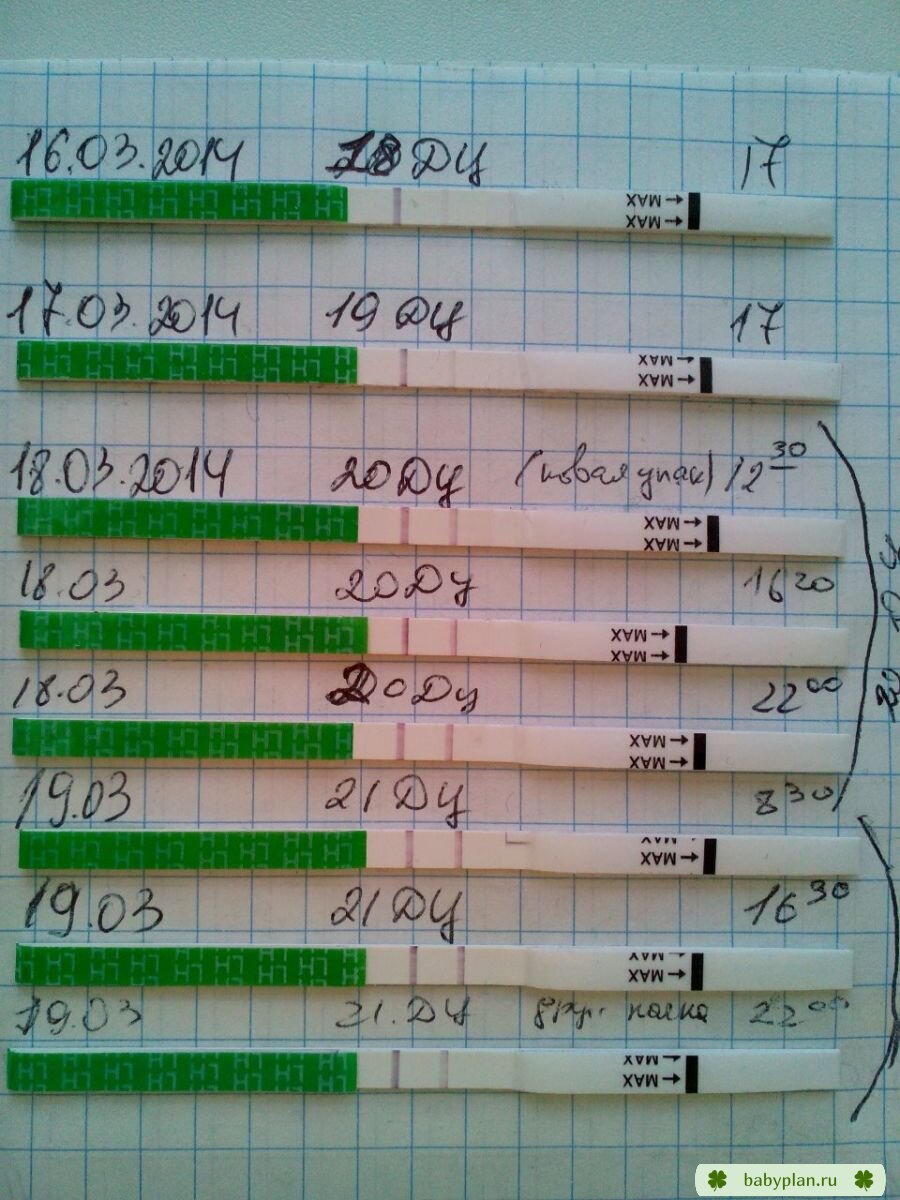 16.03.2014 18 ДЦ 17
MAX
MAX
17.03.2014 19 ДЦ 17
MAX
MAX
18.03.2014 20 ДЦ (новая упак) 12 30
MAX
MAX
18.03 20 ДЦ 16 20
MAX
MAX
18.03 20 ДЦ 22 00
MAX
MAX
19.03 21 ДЦ 8 30
MAX
MAX
19.03 21 ДЦ 16 30
MAX
MAX
19.03 21.ДЦ 22 00
MAX
MAX
babyplan.ru